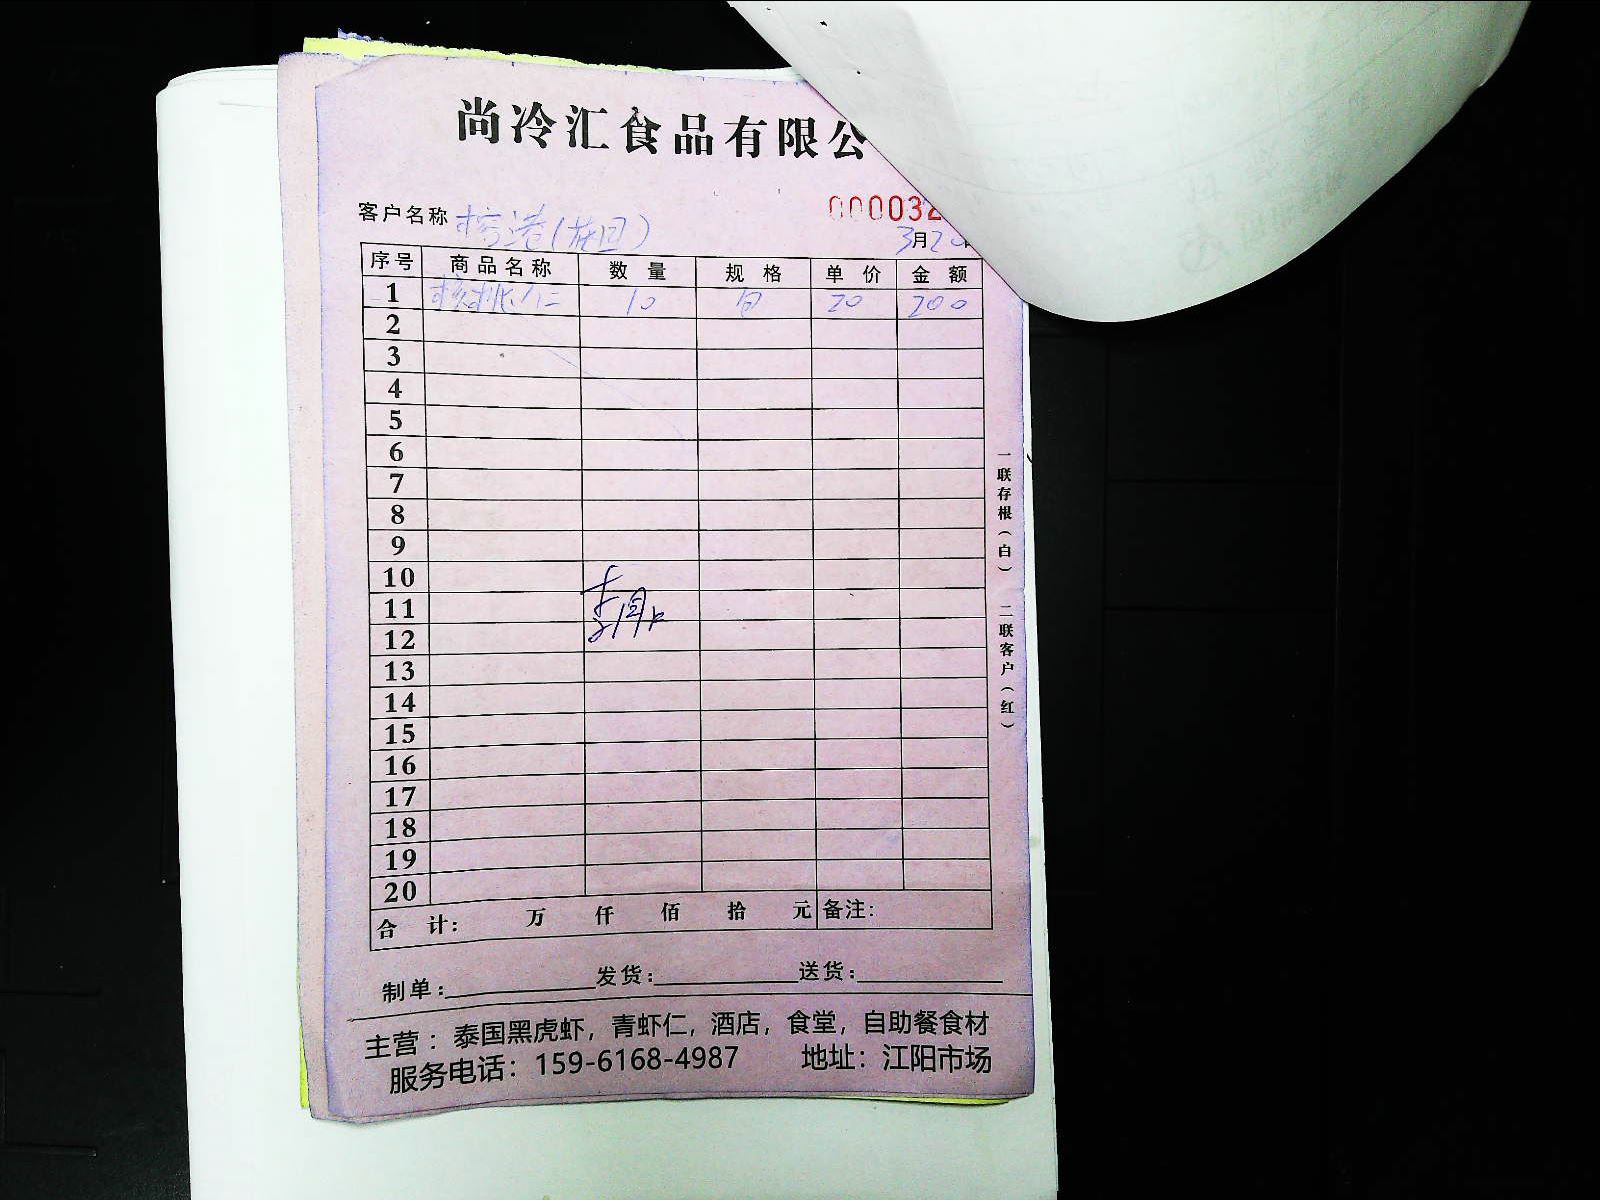 尚冷汇食品有限公
客户名称 港(
000032
3月20
序号 商品名称 数量 规格 单价 金额
1 核桃仁 10 包 20 200
2
3
4
5
6
7
8
9
10
11
12
13
14
15
16
17
18
19
20
合计: 万 仟 佰 拾 元 备注:
制单: 发货: 送货:
主营：泰国黑虎虾，青虾仁，酒店，食堂，自助餐食材
服务电话：159-6168-4987 地址：江阳市场
一联存根(白) 二联客户(红)